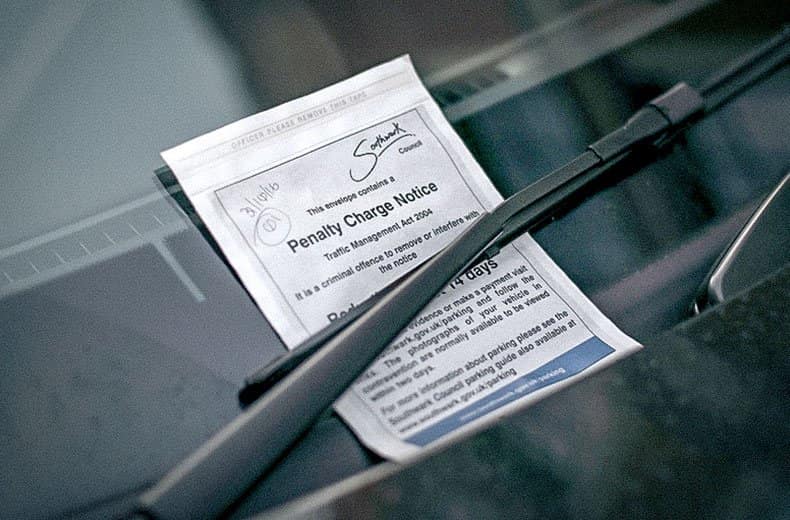 OFFICER PLEASE REMOVE THIS TAPE
Southwark
Council
3/10/16
This envelope contains a
Penalty Charge Notice
Traffic Management Act 2004
It is a criminal offence to remove or interfere with
the notice
14 days
evidence or make a payment visit
southwark.gov.uk/parking and follow the
The photographs of your vehicle in
contravention are normally available to be viewed
within two days.
For more information about parking please see the
Southwark Council parking guide also available at
www.southwark.gov.uk/parking
www.southwark.gov.uk/parking